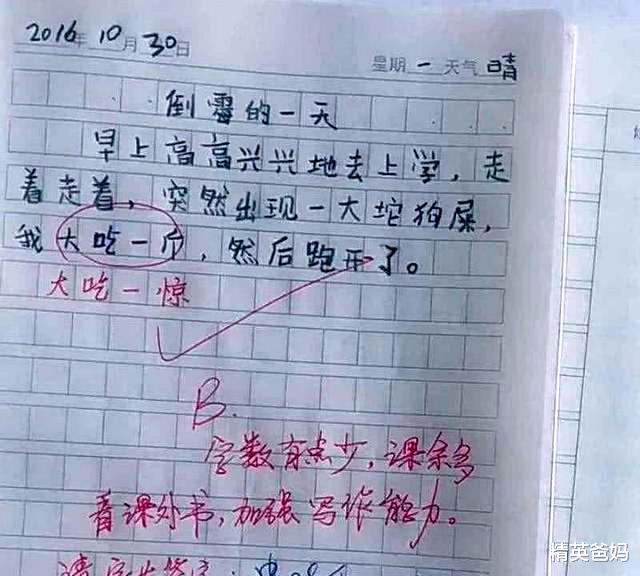 2016年10月30日 星期一 天气 晴
倒霉的一天
早上高高兴兴地去上学，走
着走着，突然出现一大坨狗屎，
我大吃一斤，然后跑开了。
大吃一惊
B.
字数有点少，课余多
看课外书，加强写作能力。
精英爸妈